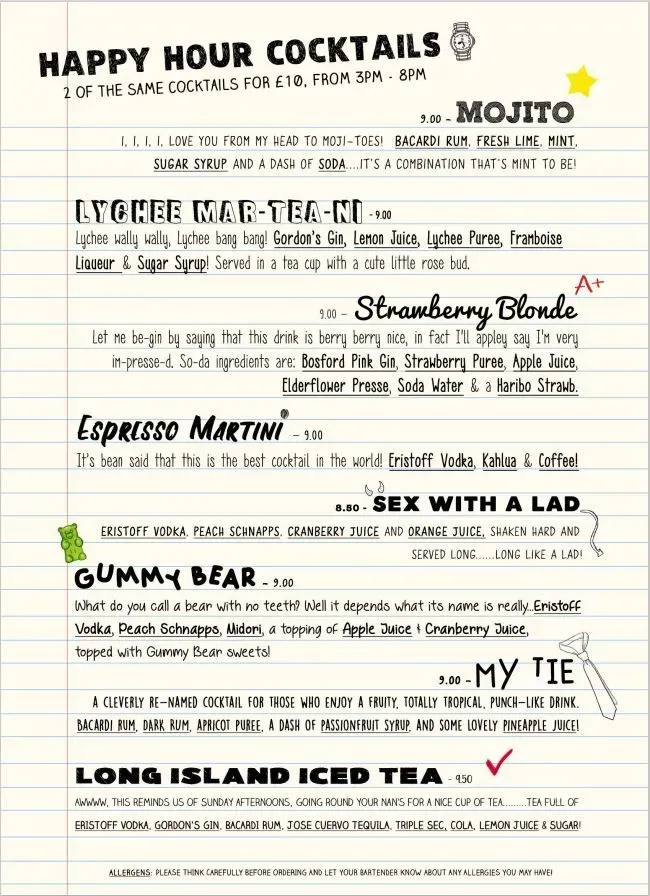 HAPPY HOUR COCKTAILS
2 OF THE SAME COCKTAILS FOR £10, FROM 3PM - 8PM
9.00 - MOJITO
I, I, I, I, LOVE YOU FROM MY HEAD TO MOJI-TOES! BACARDI RUM, FRESH LIME, MINT,
SUGAR SYRUP AND A DASH OF SODA....IT'S A COMBINATION THAT'S MINT TO BE!
LYCHEE MAR-TEA-NI - 9.00
Lychee wally wally, Lychee bang bang! Gordon's Gin, Lemon Juice, Lychee Puree, Framboise
Liqueur & Sugar Syrup! Served in a tea cup with a cute little rose bud.
A+
9.00 - Strawberry Blonde
Let me be-gin by saying that this drink is berry berry nice, in fact I'll appley say I'm very
im-presse-d. So-da ingredients are: Bosford Pink Gin, Strawberry Puree, Apple Juice,
Elderflower Presse, Soda Water & a Haribo Strawb.
Espresso Martini - 9.00
It's bean said that this is the best cocktail in the world! Eristoff Vodka, Kahlua & Coffee!
8.50 - SEX WITH A LAD
ERISTOFF VODKA, PEACH SCHNAPPS, CRANBERRY JUICE AND ORANGE JUICE, SHAKEN HARD AND
SERVED LONG......LONG LIKE A LAD!
GUMMY BEAR - 9.00
What do you call a bear with no teeth? Well it depends what its name is really...Eristoff
Vodka, Peach Schnapps, Midori, a topping of Apple Juice & Cranberry Juice,
topped with Gummy Bear sweets!
9.00 - MY TIE
A CLEVERLY RE-NAMED COCKTAIL FOR THOSE WHO ENJOY A FRUITY, TOTALLY TROPICAL, PUNCH-LIKE DRINK.
BACARDI RUM, DARK RUM, APRICOT PUREE, A DASH OF PASSIONFRUIT SYRUP, AND SOME LOVELY PINEAPPLE JUICE!
LONG ISLAND ICED TEA - 9.50
AWWWW, THIS REMINDS US OF SUNDAY AFTERNOONS, GOING ROUND YOUR NAN'S FOR A NICE CUP OF TEA.........TEA FULL OF
ERISTOFF VODKA, GORDON'S GIN, BACARDI RUM, JOSE CUERVO TEQUILA, TRIPLE SEC, COLA, LEMON JUICE & SUGAR!
ALLERGENS: PLEASE THINK CAREFULLY BEFORE ORDERING AND LET YOUR BARTENDER KNOW ABOUT ANY ALLERGIES YOU MAY HAVE!